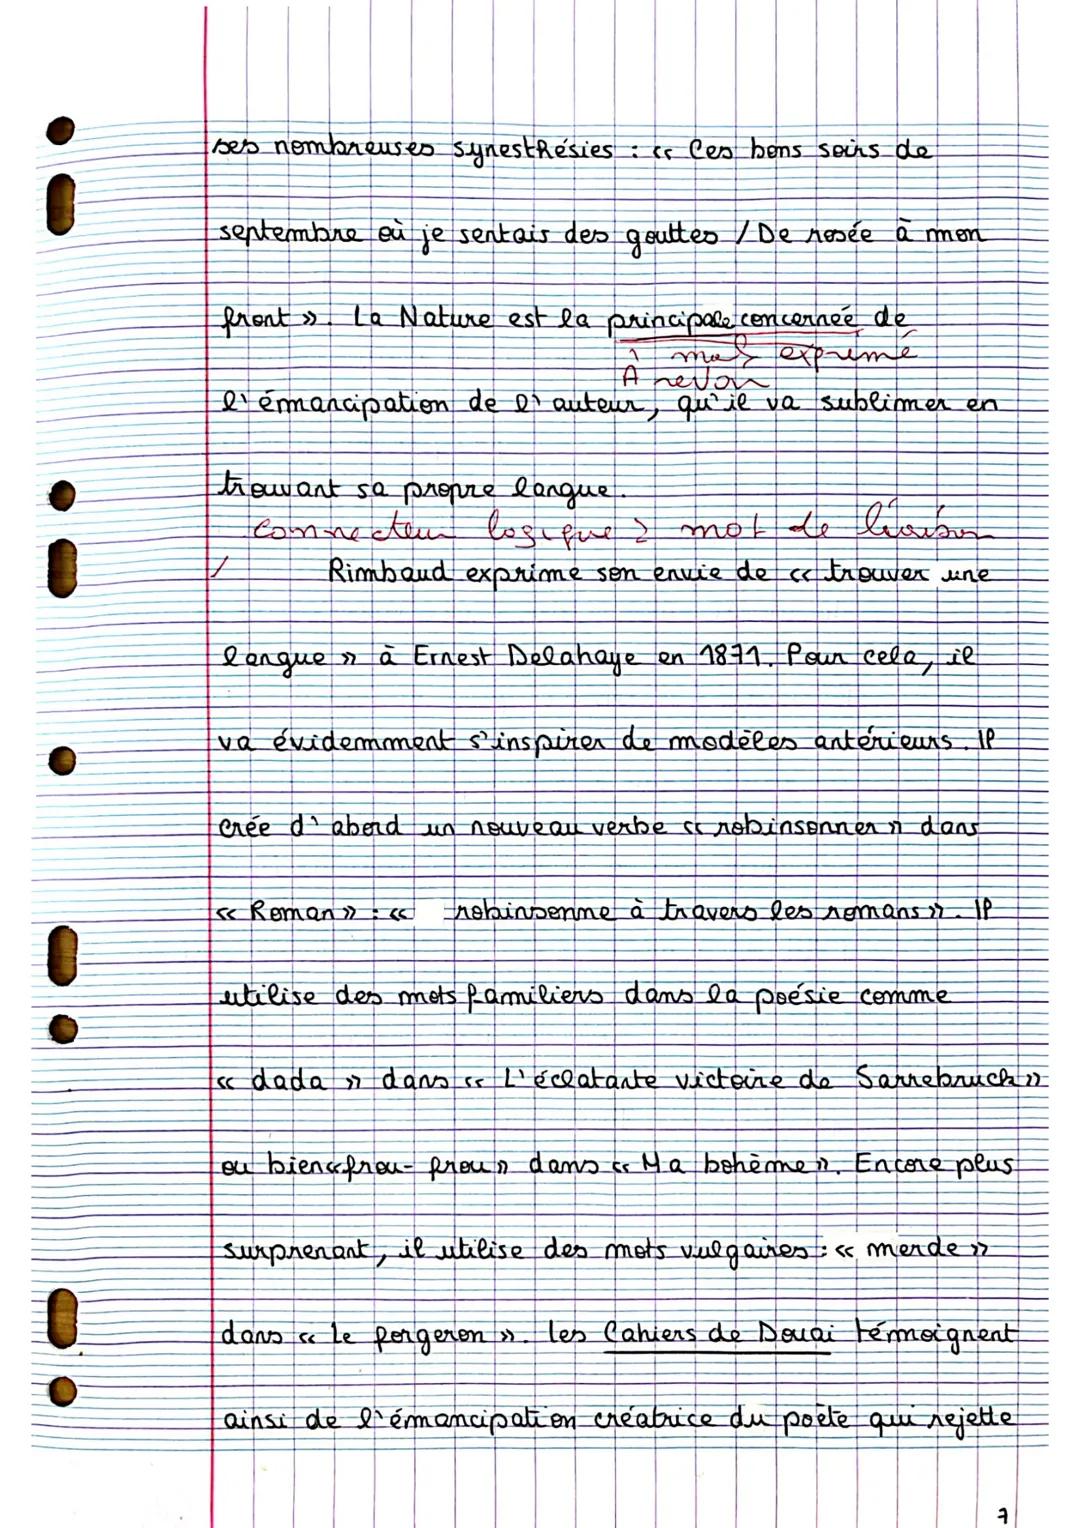 ses nombreuses synesthésies : « Ces bons soirs de
septembre où je sentais des gouttes / De rosée à mon
front ». La Nature est la principale concerneé de
mal exprimé
A revoir
l'émancipation de l'auteur, qu'il va sublimer en
trouvant sa propre langue.
connecteur logique ? mot de liaison
/ Rimbaud exprime son envie de « trouver une
langue » à Ernest Delahaye en 1871. Pour cela, il
va évidemment s'inspirer de modèles antérieurs. Il
crée d'abord un nouveau verbe « robinsonner » dans
« Roman » : « robinsonne à travers les romans ». Il
utilise des mots familiers dans la poésie comme
« dada » dans « L'éclatante victoire de Sarrebruck »
ou bien « frou-frou » dans « Ma bohème ». Encore plus
surprenant, il utilise des mots vulgaires : « merde »
dans « Le forgeron ». Les Cahiers de Douai témoignent
ainsi de l'émancipation créatrice du poète qui rejette
7